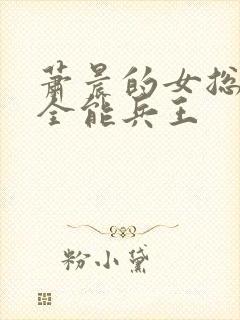 萧晨的女总
全能兵王
粉小黛